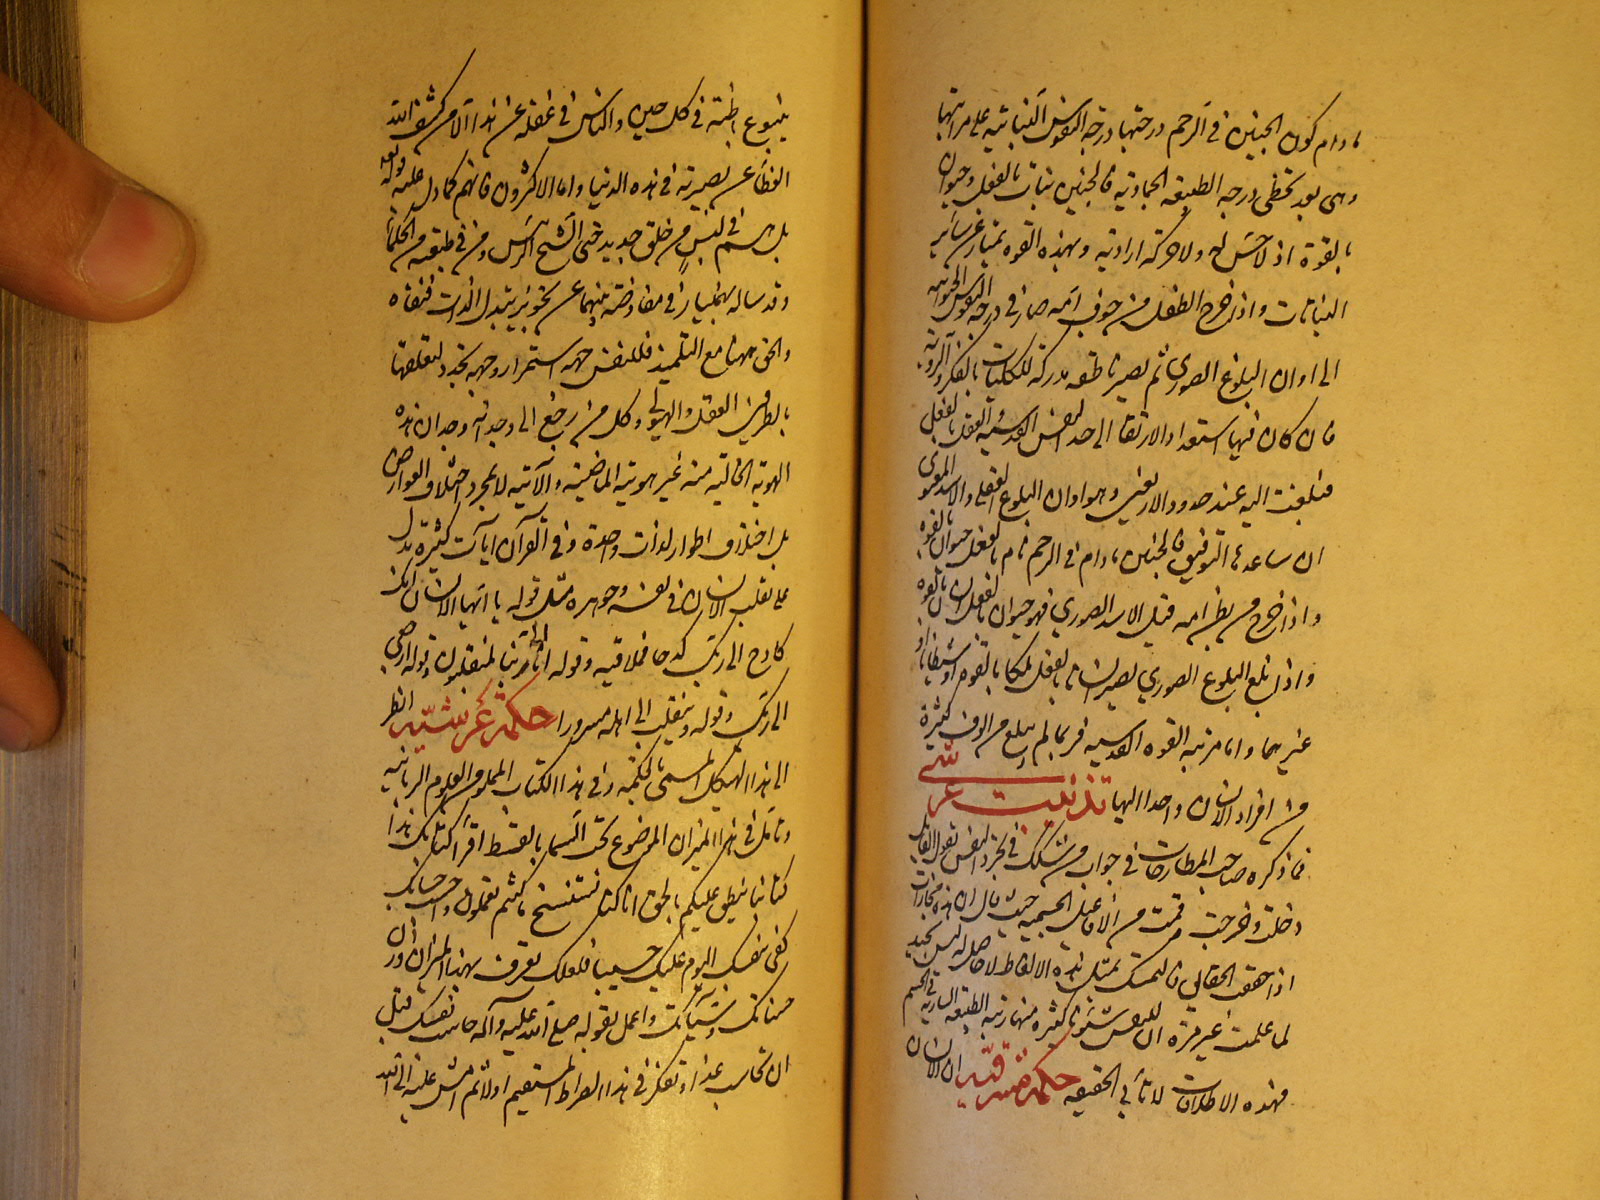 ما دام كون الجنين في الرحم درجتها درجة النفوس النباتية على مراتبها
وهي بعد تخطي درجة الطبيعة الجمادية فالجنين نبات بالفعل وحيوان
بالقوة اذ لا حس له ولا حركة ارادية وبهذه القوة يمتاز عن سائر
النباتات واذا خرج الطفل من جوف امه صار في درجة النفوس الحيوانية
الى اوان البلوغ الصوري ثم يصير ناطقة مدركة للكليات بالفكر والروية
فان كان فيها استعداد الارتقا الى حد النفس القدسية والعقل بالفعل
فبلغت اليه عند حدود الاربعين وهو اوان البلوغ العقلي والاشد المعنوى
ان ساعده التوفيق فالجنين ما دام في الرحم نام بالفعل حيوان بالقوة
واذا خرج من بطن امه قبل الاشد الصوري فهو حيوان بالفعل انسان بالقوة
واذا بلغ البلوغ الصوري يصير انسانا بالفعل ملكا بالقوة او شيطانا او
غيرهما واما مرتبة القوة القدسية فربما لم يبلغ من الوف كثيرة
من افراد الانسان واحد اليها تذنيب عرشي
فما ذكره صاحب المطارحات في جواب من شكك في تجرد النفس بقول القائل
دخلت وخرجت وقمت من الافاعيل الجسمية حيث قال ان هذه مجازات
اذا حقق الحقائق فالتمسك بمثل هذه الالفاظ لا حاصل له ليس بجيد
لما علمت غير مرة ان للنفس شئونا كثيرة منها رتبة الطبيعة السارية في الجسم
فهذه الاطلاقات لا تأبي الحقيقة حكمة مشرقية ان الانسان
يتنوع باطنه في كل حين والناس في غفلة عن هذا الا من كشف الله
الغطاء عن بصيرته في هذه الدنيا واما الاكثرون فانهم كما دل عليه قوله
بل هم في لبس من خلق جديد حتى الشيخ الرئيس ومن في طبقته من الحكماء
وقد ساله بهمنيار في مفاوضة بينهما عن تجويز تبدل الذات فنفاه
والحق ههنا مع التلميذ فللنفس جهة استمرار وجهة تجدد لتعلقها
بالطرفين العقل والهيولى وكل من رجع الى وجدانه وجد ان هذه
الهوية الحالية منه غير هويته الماضية والآتية لا بمجرد اختلاف العوارض
بل اختلاف اطوار لذات واحدة وفي القرآن آيات كثيرة تدل
على تقلب الانسان في نفسه وجوهره مثل قوله يا ايها الانسان انك
كادح الى ربك كدحا فملاقيه وقوله انا الى ربنا لمنقلبون وقوله ارجعي
الى ربك وقوله وينقلب الى اهله مسرورا حكمة عرشية انظر
الى هذا الهيكل المسمى بالحكمة وفي هذا الكتاب المملو من العلوم الربانية
وتأمل في هذا الميزان الموضوع تحت السما بالقسط اقرأ كتابك هذا
كتابنا ينطق عليكم بالحق انا كنا نستنسخ ما كنتم تعملون واحسب حسابك
كفى بنفسك اليوم عليك حسيبا فلعلك تعرف بهذا الميزان وزن
حسناتك وسيآتك واعمل بقوله صلى الله عليه وآله حاسب نفسك قبل
ان تحاسب غدا وتفكر في هذا الصراط المستقيم اولا ثم امش عليه الى الله